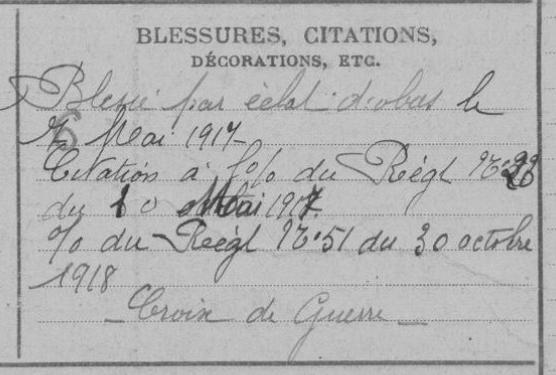 BLESSURES, CITATIONS,
DÉCORATIONS, ETC.
Blessé par éclat d'obus le
6 Mai 1917
Citation à l'o/o du Régt N° 28
du 10 Mai 1917
o/o du Régt N° 51 du 30 octobre
1918
- Croix de Guerre -